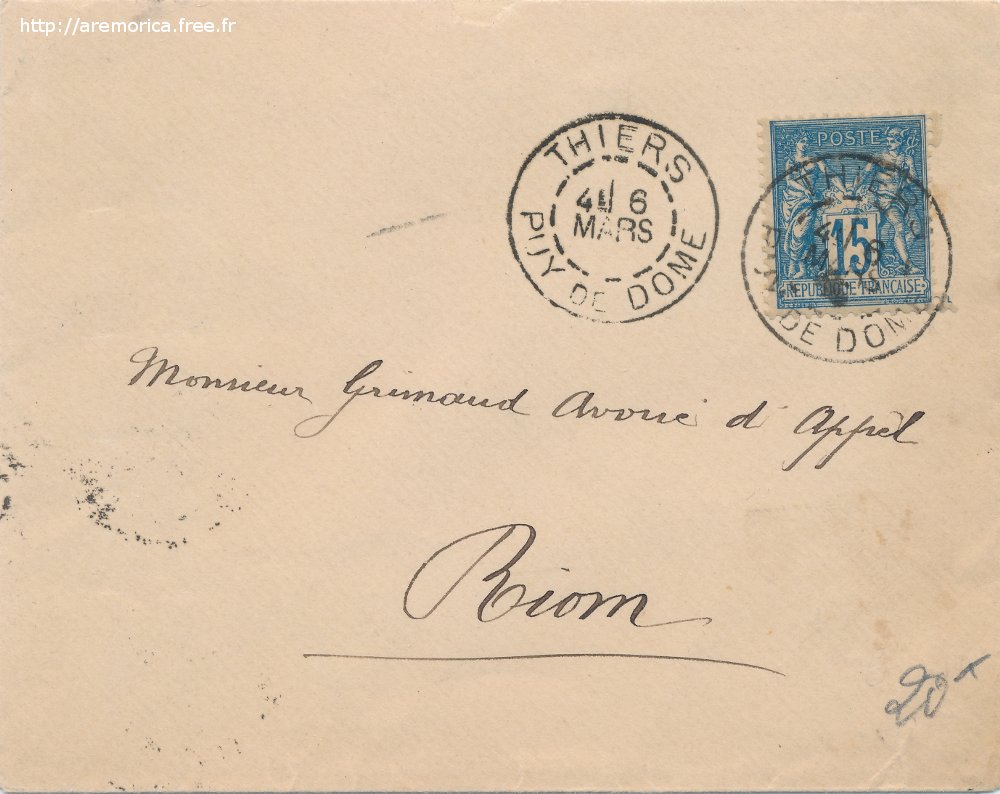 http://aremorica.free.fr
THIERS
4 6
MARS
PUY DE DOME
POSTE
15
REPUBLIQUE FRANÇAISE
THIERS
4 6
DE DOME
Monsieur Grimaud Avoué d'Appel
Riom
20